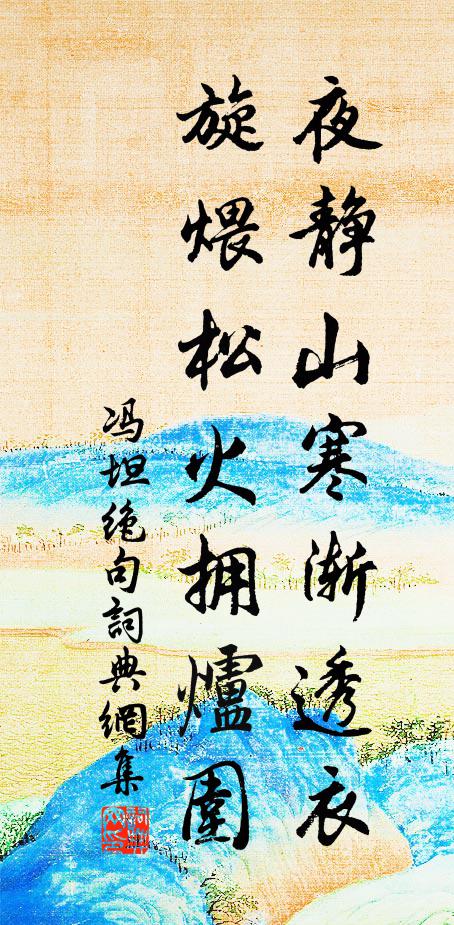 夜静山寒渐透衣
旋煨松火拥爐圍
冯坦绝句詞典網集